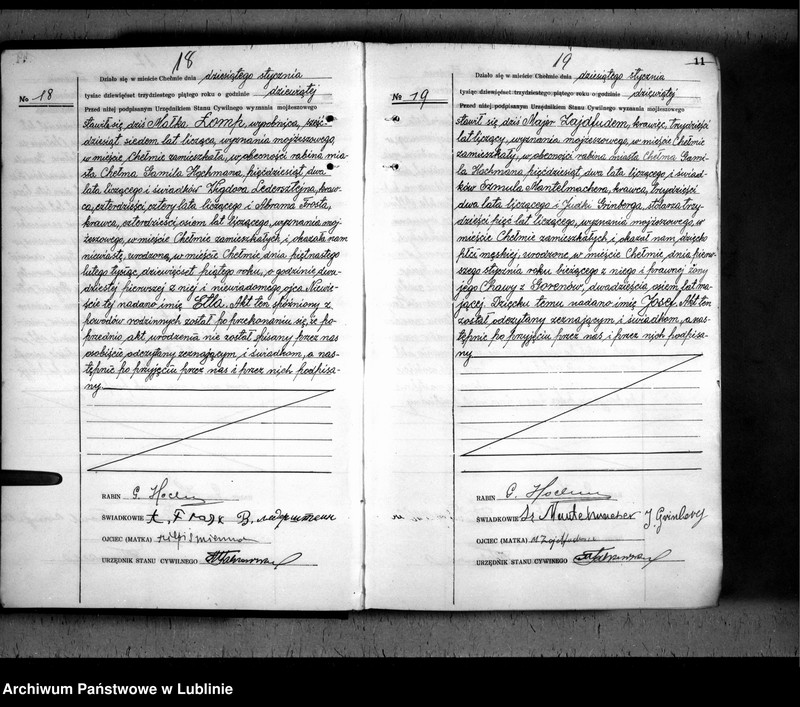 18
Działo się w mieście Chełmie dnia dziesiątego stycznia
No 18
tysiąc dziewięćset trzydziestego piątego roku o godzinie dziewiątej
Przed niżej podpisanym Urzędnikiem Stanu Cywilnego wyznania mojżeszowego
stawiła się dziś Matka Łomp, wyrobnica, sześć-
dziesiąt siedem lat licząca, wyznania mojżeszowego,
w mieście Chełmie zamieszkała, w obecności rabina mia-
sta Chełma Gamila Hochmana, pięćdziesiąt dwa
lata liczącego i świadków Wigdora Ledersztejna, kraw-
ca, czterdzieści cztery lata liczącego i Abrama Frosta,
krawca, czterdzieści osiem lat liczącego, wyznania moj-
żeszowego, w mieście Chełmie zamieszkałych i okazała nam
niewiastę, urodzoną w mieście Chełmie, dnia piętnastego
lutego tysiąc dziewięćset piątego roku, o godzinie dwu-
dziestej pierwszej z niej i niewiadomego ojca. Niewie-
ście tej nadano imię Etla. Akt ten spóźniony z
powodów rodzinnych został po przekonaniu się, że po-
przednio akt urodzenia nie został spisany przez nas
osobiście, odczytany zeznającym i świadkom, a nas-
tępnie po przyjęciu przez nas i przez nich podpisa-
ny
RABIN G. Hochman
ŚWIADKOWIE A. Frost
OJCIEC (MATKA) niepiśmienna
URZĘDNIK STANU CYWILNEGO
19
11
Działo się w mieście Chełmie dnia dziesiątego stycznia
No 19
tysiąc dziewięćset trzydziestego piątego roku o godzinie dziewiątej
Przed niżej podpisanym Urzędnikiem Stanu Cywilnego wyznania mojżeszowego
stawił się dziś Major Zajdfudem, krawiec, trzydzieści
lat liczący, wyznania mojżeszowego, w mieście Chełmie
zamieszkały, w obecności rabina miasta Chełma Gami-
la Hochmana pięćdziesiąt dwa lata liczącego i świad-
ków Szmula Mantelmachera, krawca, trzydzieści
dwa lata liczącego i Judki Grinberga, stolarza trzy-
dzieści pięć lat liczącego, wyznania mojżeszowego, w
mieście Chełmie zamieszkałych i okazał nam dziecko
płci męskiej, urodzone w mieście Chełmie dnia pierw-
szego stycznia roku bieżącego z niego i prawnej żony
jego Chawy z Gorenów, dwadzieścia osiem lat ma-
jącej. Dziecku temu nadano imię Josef. Akt ten
został odczytany zeznającym i świadkom, a nas-
tępnie po przyjęciu przez nas i przez nich podpisa-
ny
RABIN G. Hochman
ŚWIADKOWIE Sz. Mantelmacher J. Grinberg
OJCIEC (MATKA) M. Zajdfudem
URZĘDNIK STANU CYWILNEGO
Archiwum Państwowe w Lublinie